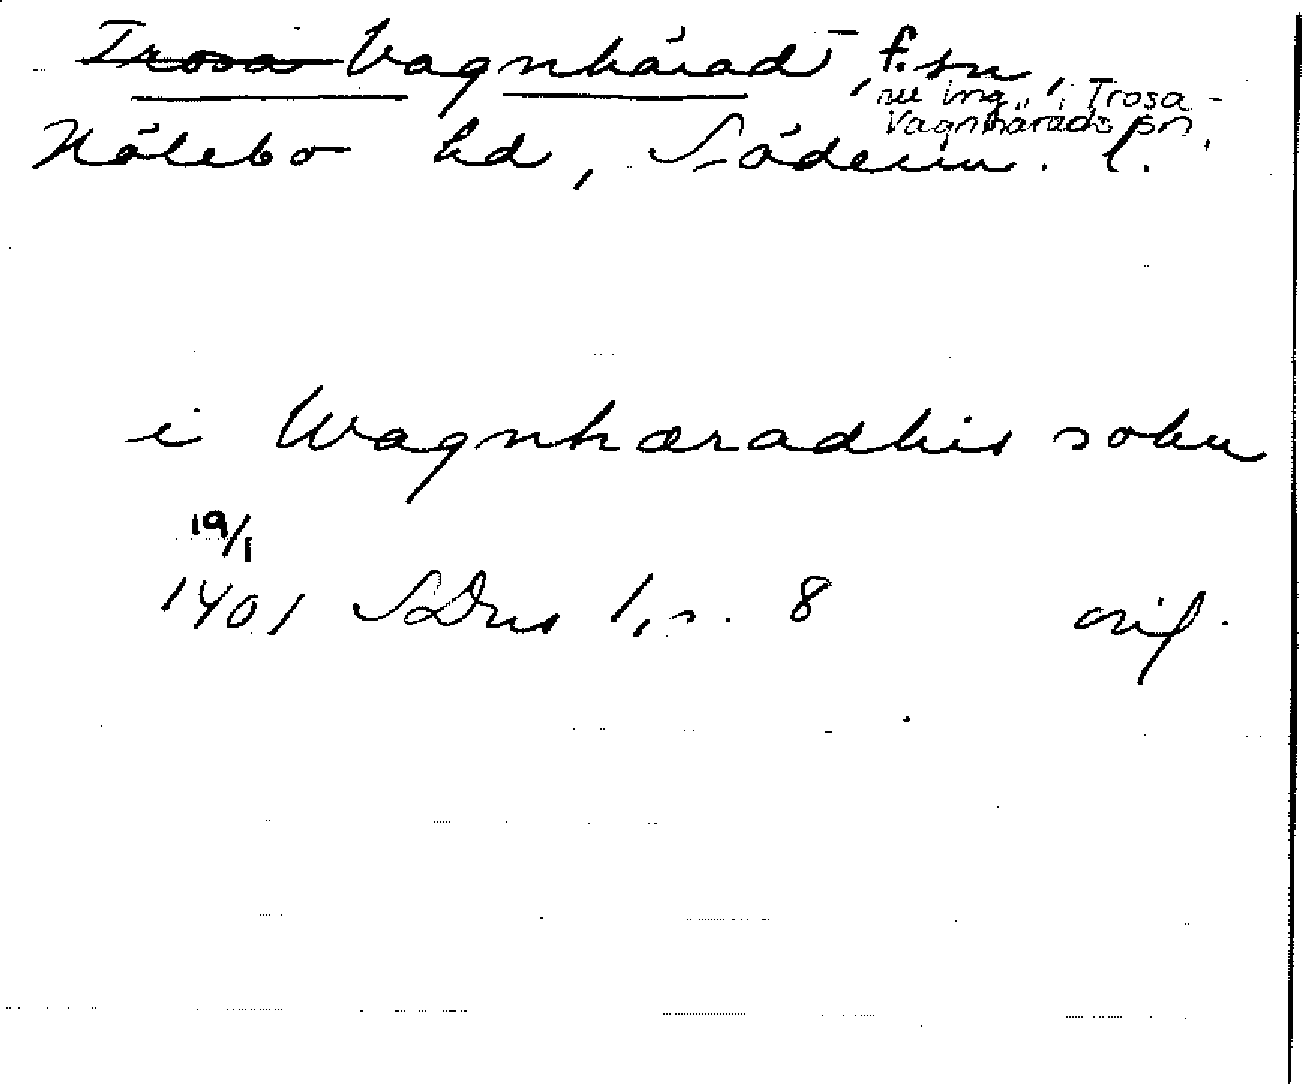 Trosa Vagnhärad, f. sn,
nu ing. i Trosa-
Vagnhärads sn,
Hölebo hd, Söderm. l.
i Wagnhæradhis sokn
19/1
1401 SDns 1, s. 8 orig.